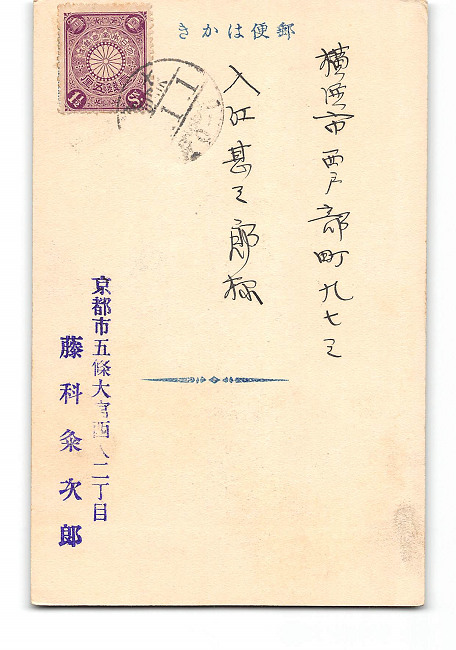 郵便はかき
横浜市西戸部町九七三
入江甚三郎様
京都市五條大宮西入二丁目
藤科粂次郎
1½ Sn
1. 1